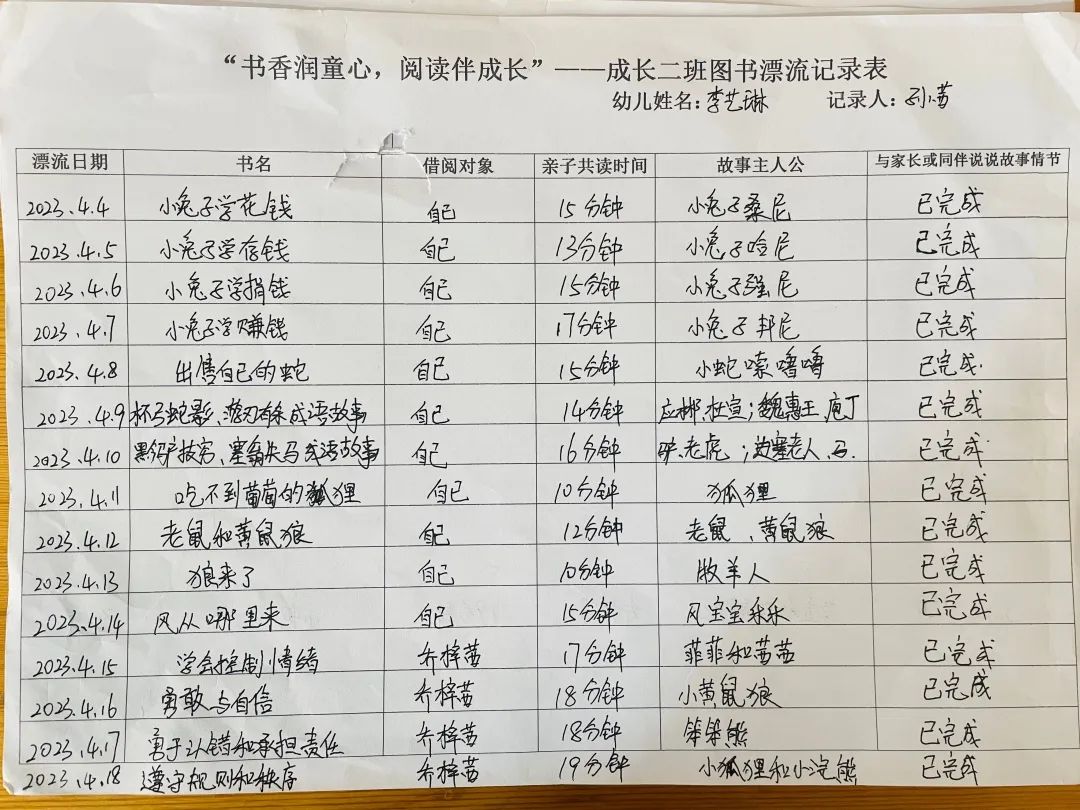 “书香润童心，阅读伴成长”——成长二班图书漂流记录表
幼儿姓名：李艺琳 记录人：孙茜
漂流日期 书名 借阅对象 亲子共读时间 故事主人公 与家长或同伴说说故事情节
2023.4.4 小兔子学花钱 自己 15分钟 小兔子桑尼 已完成
2023.4.5 小兔子学存钱 自己 13分钟 小兔子哈尼 已完成
2023.4.6 小兔子学捐钱 自己 15分钟 小兔子强尼 已完成
2023.4.7 小兔子学赚钱 自己 17分钟 小兔子邦尼 已完成
2023.4.8 出售自己的蛇 自己 15分钟 小蛇嗦噜噜 已完成
2023.4.9 杯弓蛇影、游刃有余成语故事 自己 14分钟 应郴、杜宣；魏惠王、庖丁 已完成
2023.4.10 黑驴技穷、塞翁失马成语故事 自己 16分钟 驴、老虎；边塞老人、马 已完成
2023.4.11 吃不到葡萄的狐狸 自己 10分钟 狐狸 已完成
2023.4.12 老鼠和黄鼠狼 自己 12分钟 老鼠、黄鼠狼 已完成
2023.4.13 狼来了 自己 10分钟 牧羊人 已完成
2023.4.14 风从哪里来 自己 15分钟 风宝宝乐乐 已完成
2023.4.15 学会控制情绪 乔梓茜 17分钟 菲菲和茜茜 已完成
2023.4.16 勇敢与自信 乔梓茜 18分钟 小黄鼠狼 已完成
2023.4.17 勇于认错和承担责任 乔梓茜 18分钟 笨笨熊 已完成
2023.4.18 遵守规则和秩序 乔梓茜 19分钟 小狐狸和小浣熊 已完成